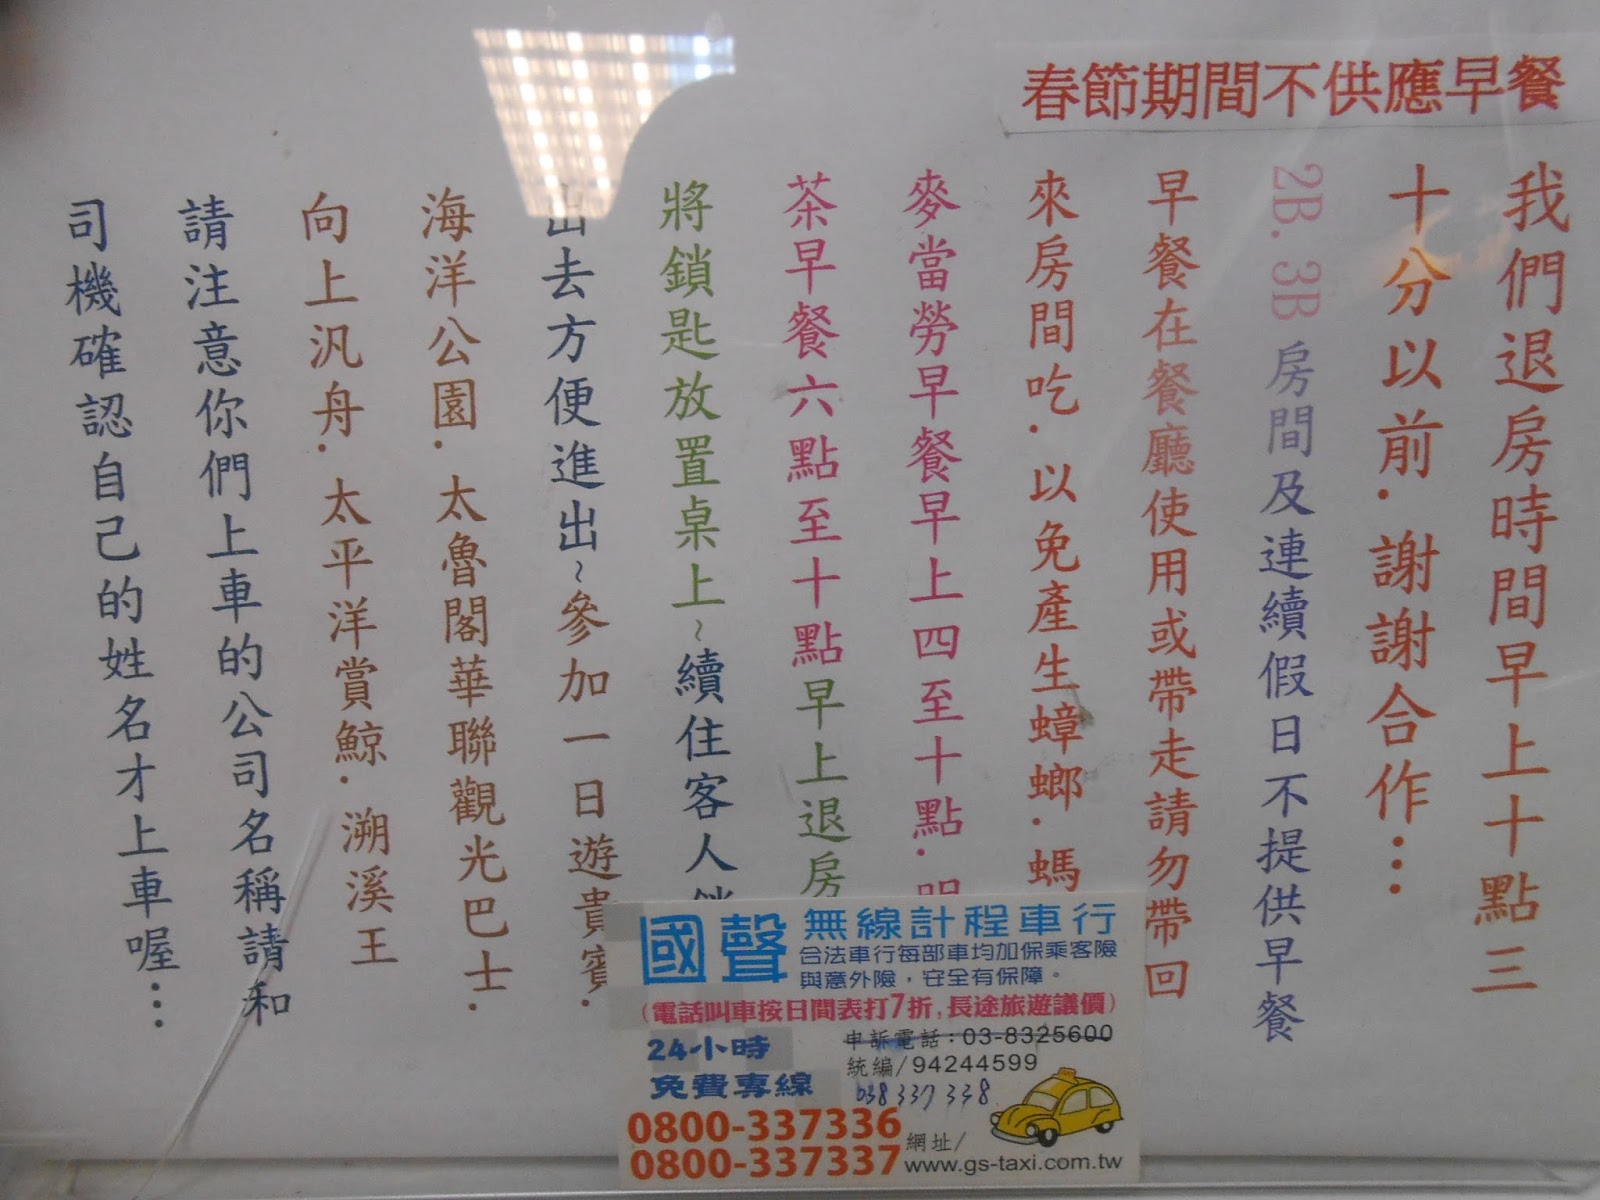 春節期間不供應早餐
我們退房時間早上十點三
十分以前．謝謝合作…
2B. 3B 房間及連續假日不提供早餐
早餐在餐廳使用或帶走請勿帶回
來房間吃．以免產生蟑螂．螞
麥當勞早餐早上四至十點．
茶早餐六點至十點早上退房
將鎖匙放置桌上~續住客人
出去方便進出~參加一日遊貴賓．
海洋公園．太魯閣華聯觀光巴士．
向上汎舟．太平洋賞鯨．溯溪王
請注意你們上車的公司名稱請和
司機確認自己的姓名才上車喔…
國聲 無線計程車行
合法車行每部車均加保乘客險
與意外險，安全有保障。
(電話叫車按日間表打7折,長途旅遊議價)
24小時
免費專線
申訴電話：03-8325600
統編/94244599
038 337 338
0800-337336
0800-337337
網址/
www.gs-taxi.com.tw